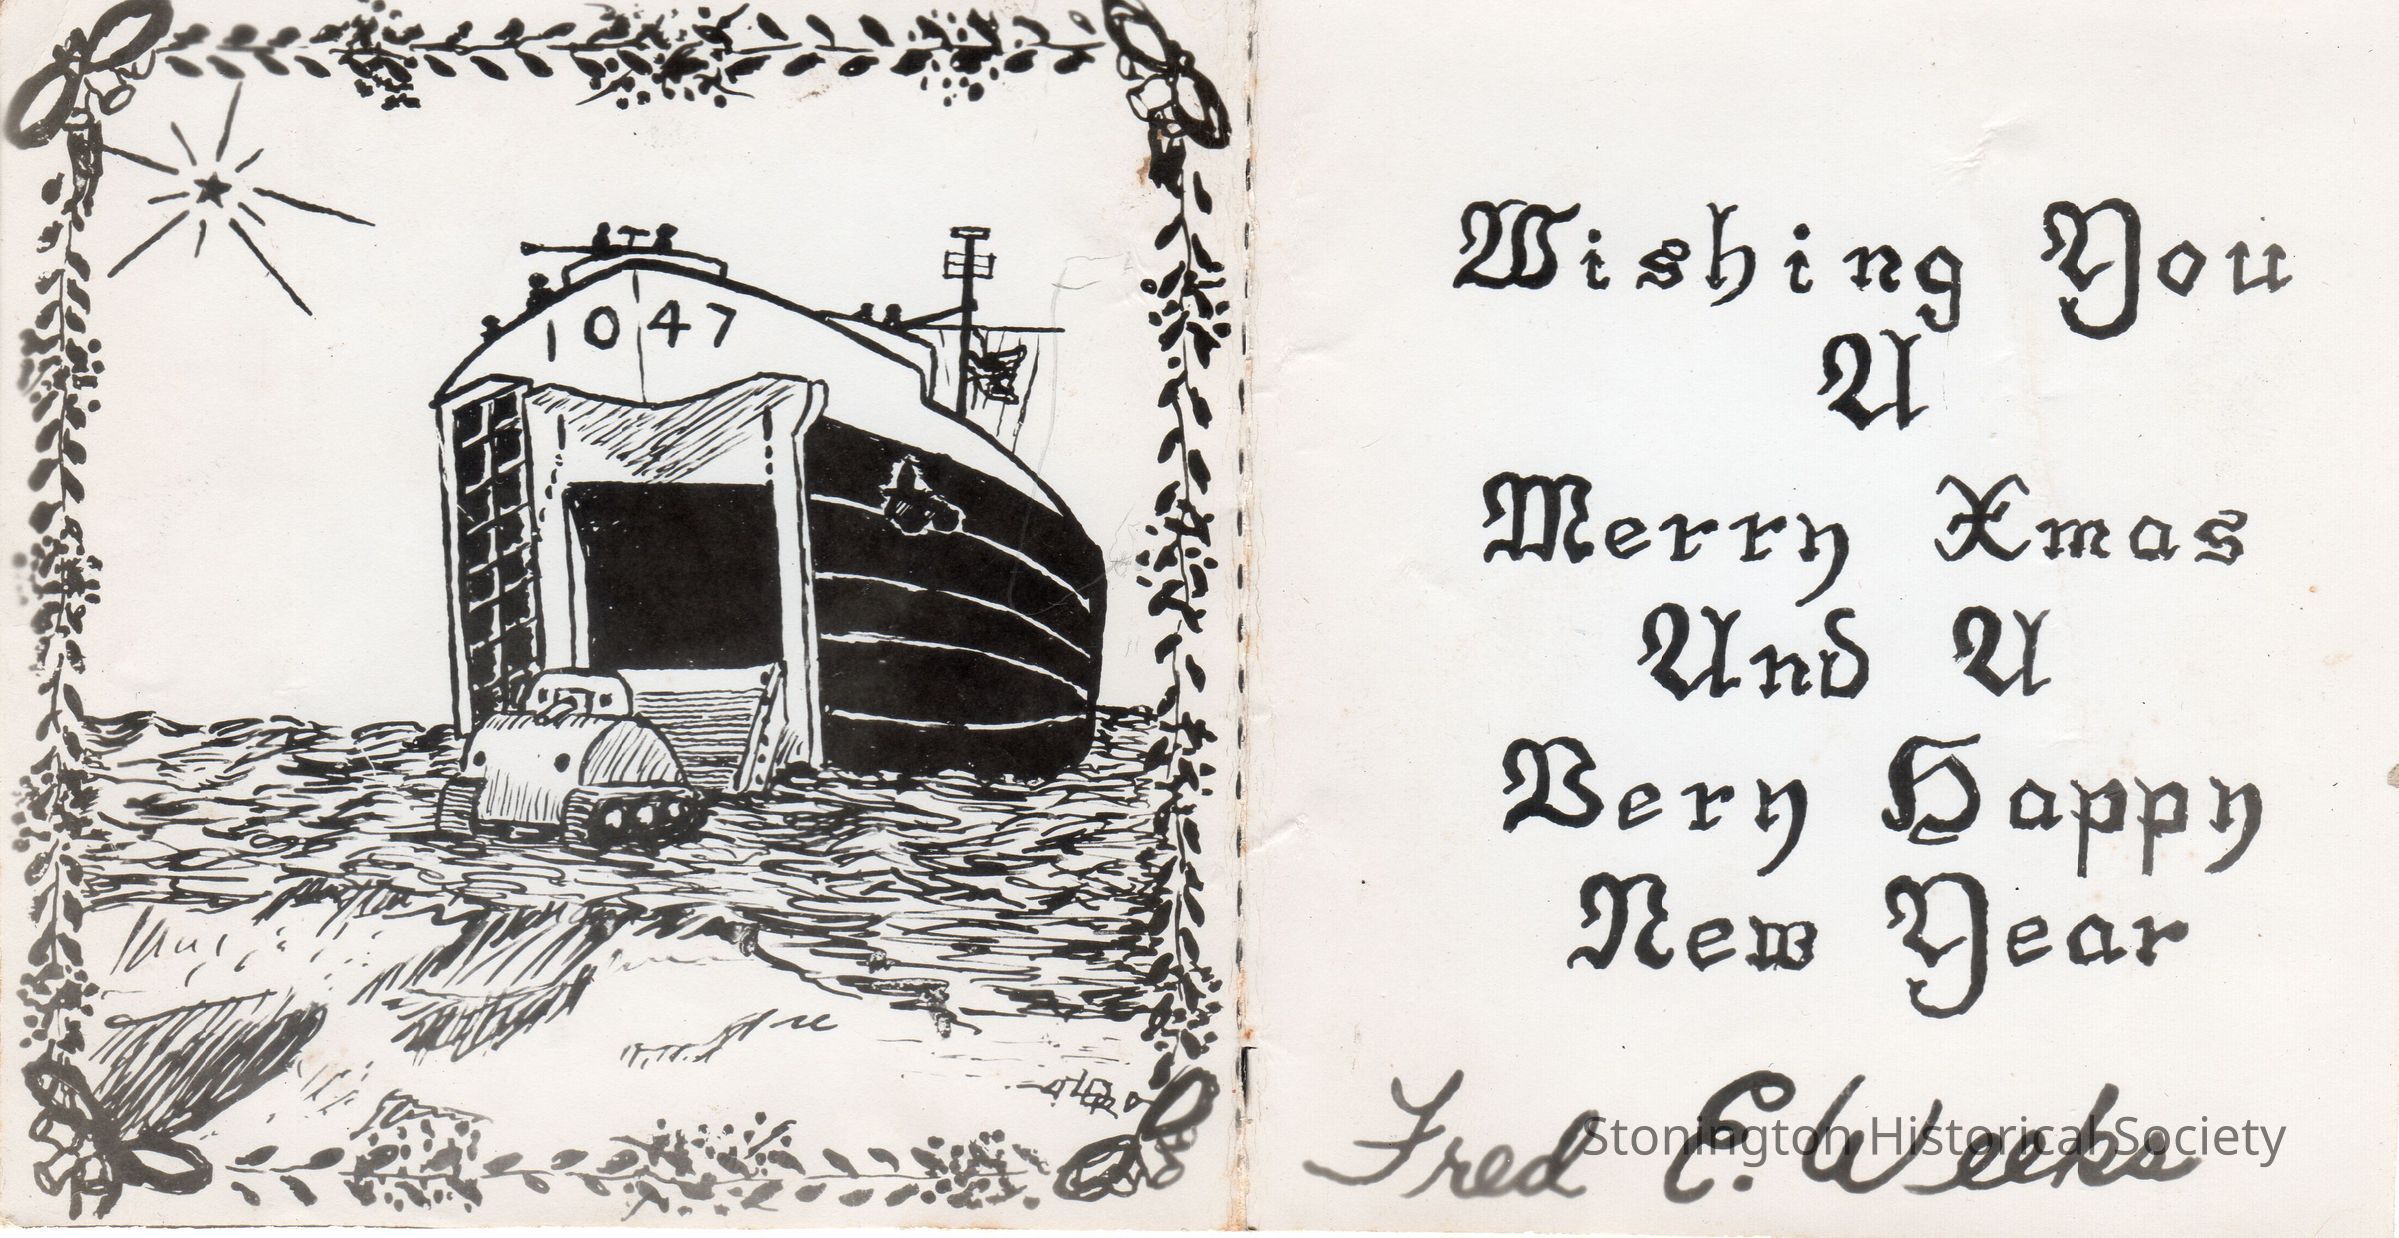 1047
Wishing You
A
Merry Xmas
And A
Very Happy
New Year
Fred E. Weeks
Stonington Historical Society